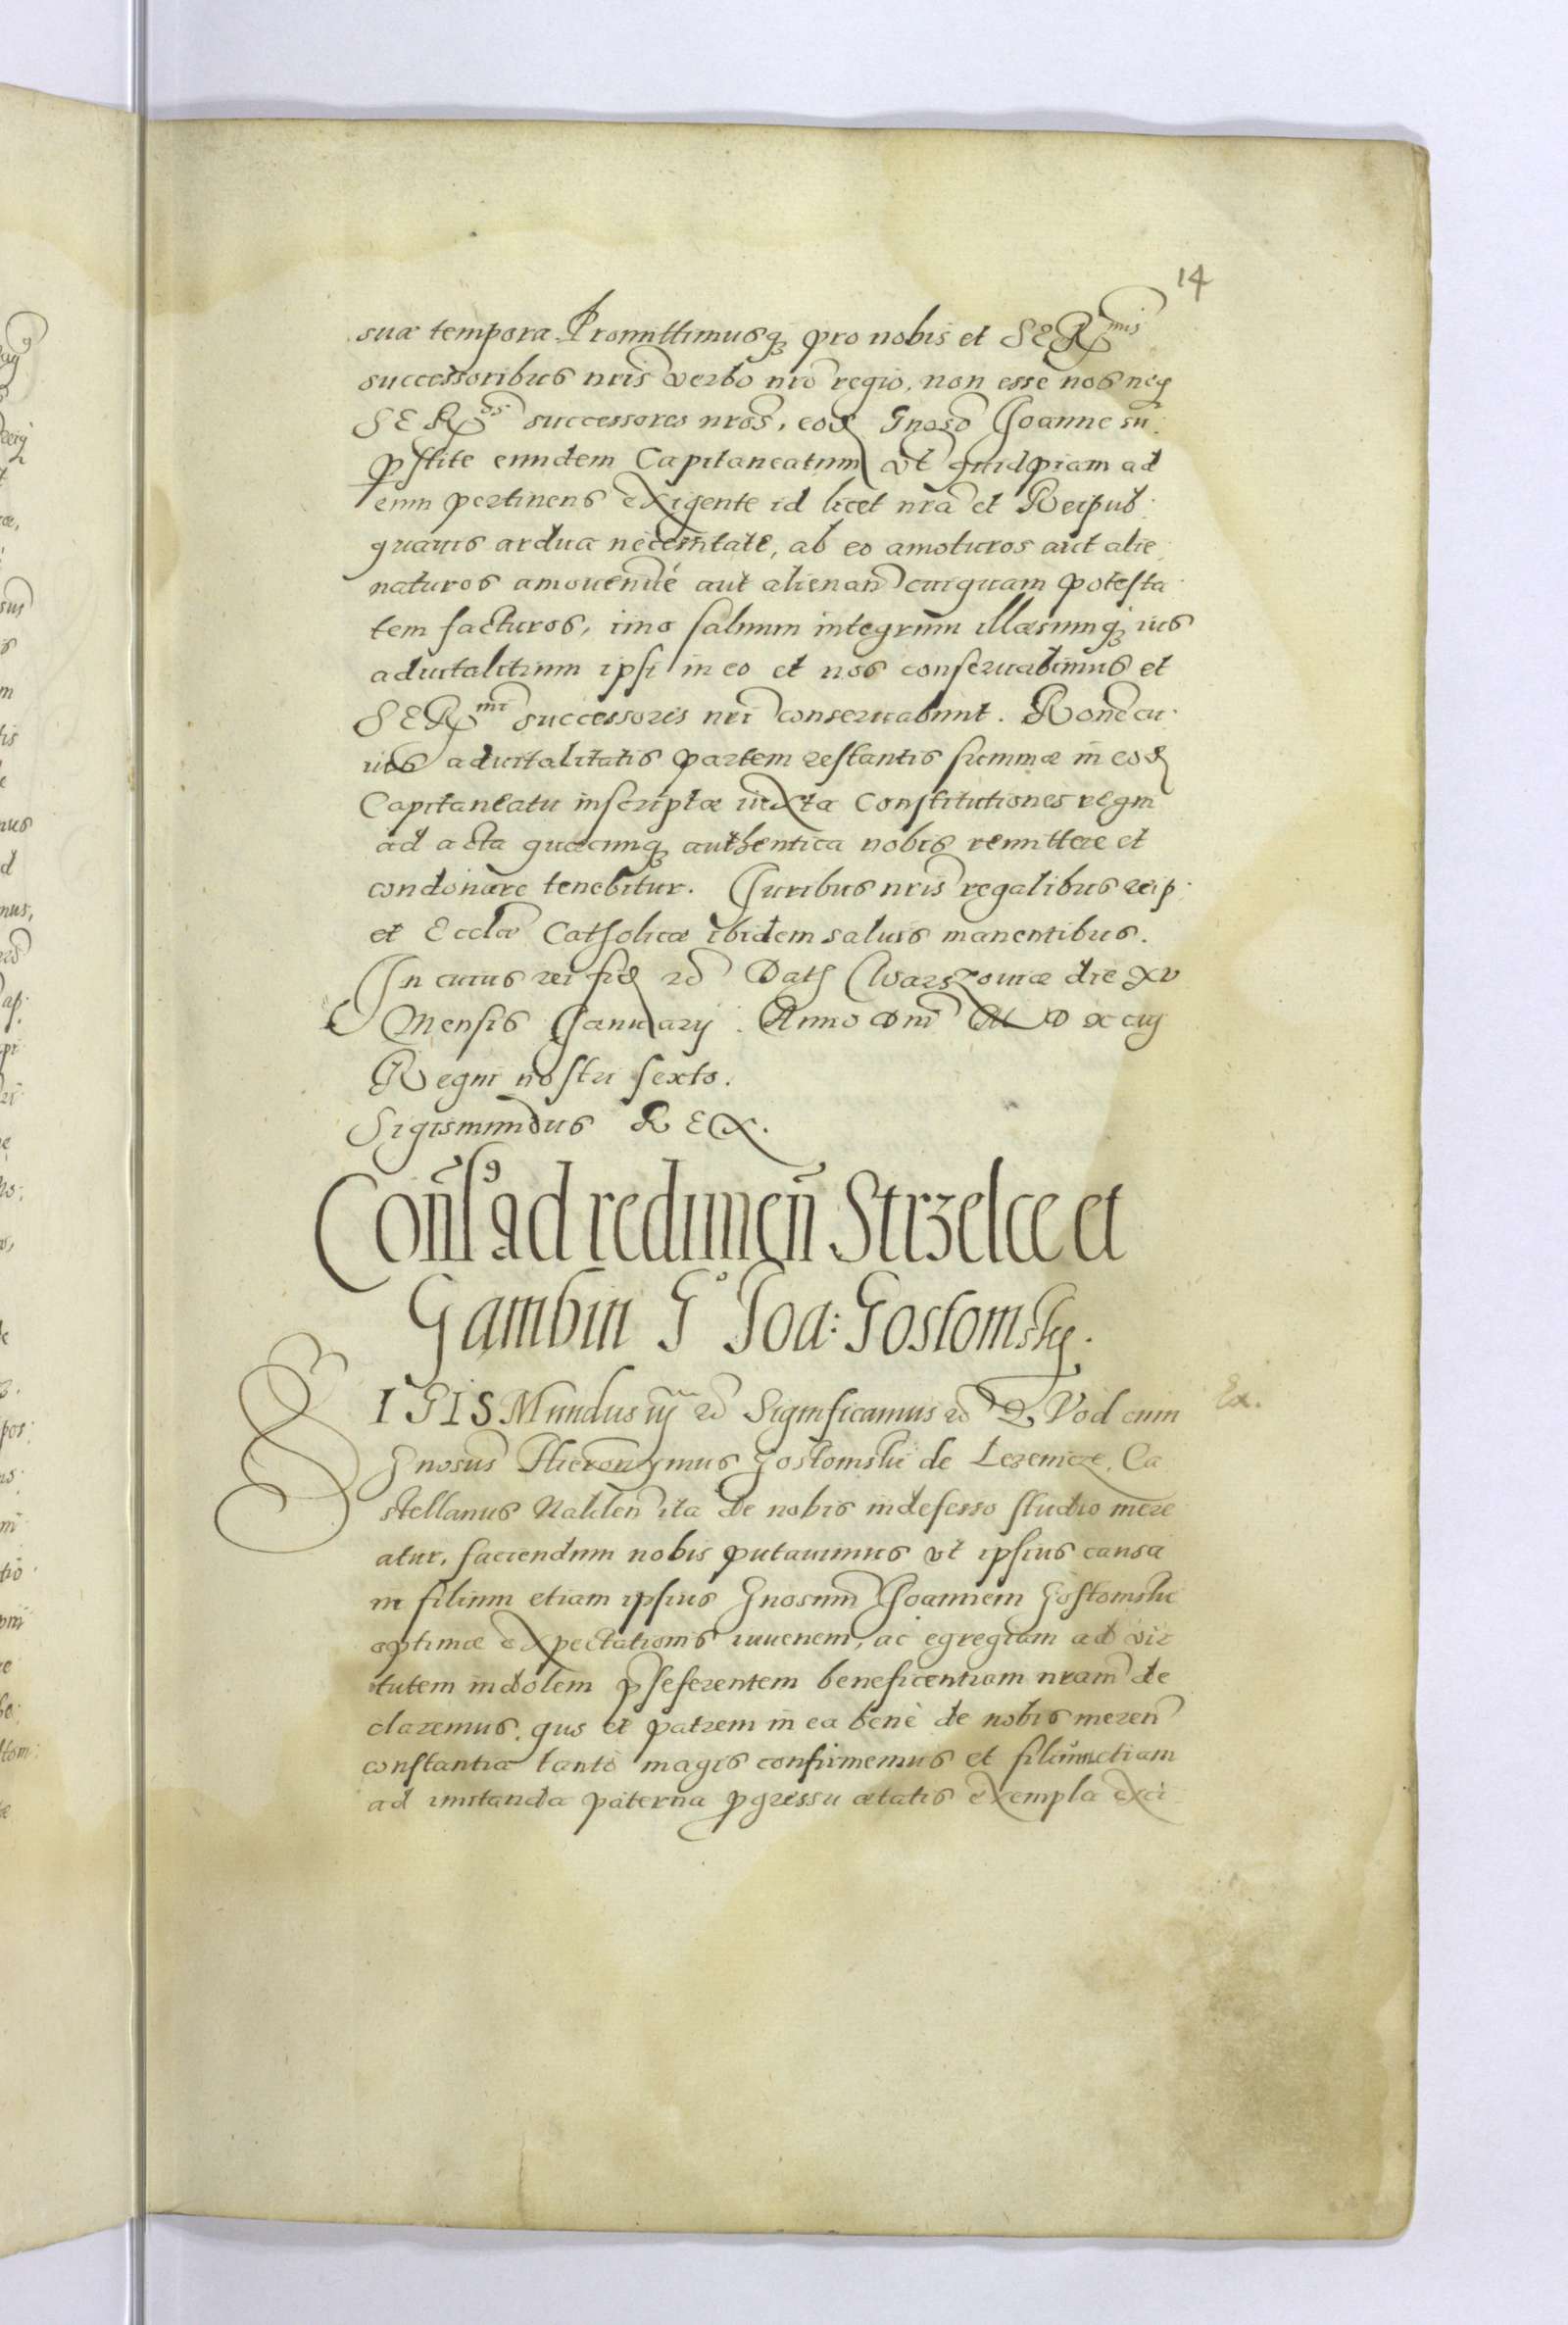 14
suæ tempora. Promittimusq₃ pro nobis et SERmis
successoribus nris verbo nro regio, non esse nos neq₃
SERos successores nros, eod Gnoso Joanne su
pstite eundem Capitaneatum vt quidpiam ad
eum pertinens exigente id licet nra et Reipub:
quauis ardua necessitate, ab eo amoturos aut alie
naturos amouendé aut alienan cuiquam potesta
tem facturos, imo saluum integrum illæsumq₃ ius
aduitalitium ipsi in eo et nos conseruabimus et
SERmi successores nri conseruabunt.
ius aduitalitatis partem restantis summæ in eod
Capitaneatu inscriptæ iuxta Constitutiones regni
ad acta quæcunq₃ authentica nobis remittere et
condonare tenebitur. Juribus nris regalibus reip:
et Ecclæ Catholicæ ibidem saluis manentibus.
In cuius rei fid rd Dath Warszouiæ die xv
Mensis Januarij. Anno Dni M D xciij
Regni nostri sexto.
Sigismundus REX.
Cons9 ad redimen Strzelce et
Gambin Go Joa: Gostomsky.
SIGISMundus iij rd Significamus rd QVod cum
Ex.
Gnosus Hieronymus Gostomski de Lezenicze, Ca
stellanus Naklen ita de nobis indefesso studio mere
atur, faciendum nobis putauimus vt ipsius causa
in filium etiam ipsius Gnosum Joannem Gostomski
optimæ expectationis iuuenem, ac egregiam ad vir
tutem indolem pseferentem beneficentiam nram de
claremus. quo et patrem in ea bene de nobis meren
constantia tanto magis confirmemus et filium etiam
ad imitanda paterna pgressu ætatis exempla exci